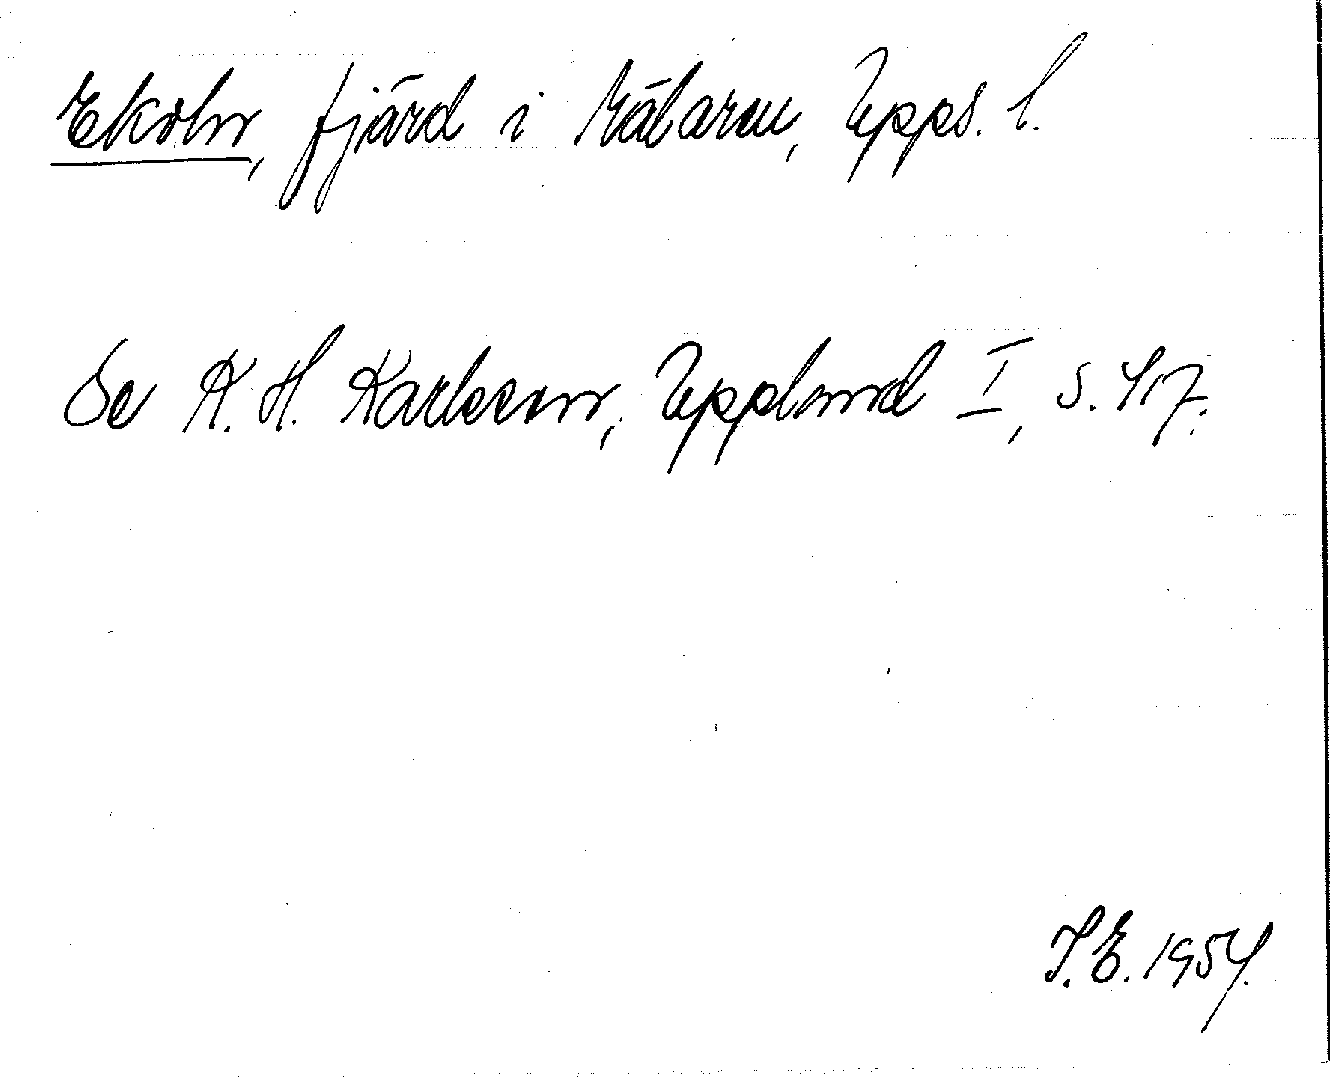 Ekoln, fjärd i Mälaren, Upps. l.
Se K. H. Karlsson, Uppland I, s. 417.
I.E. 1954.